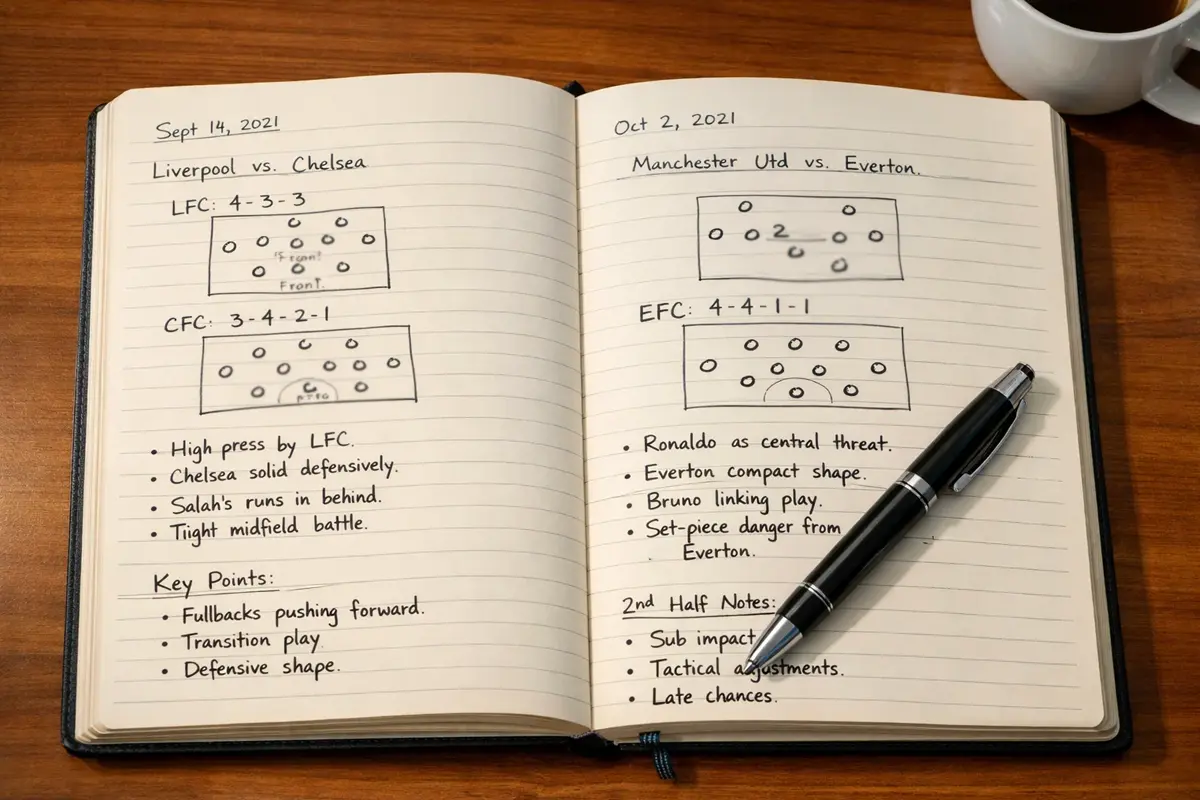 Sept 14, 2021
Liverpool vs. Chelsea
LFC: 4-3-3
Front.
CFC: 3-4-2-1
• High press by LFC.
• Chelsea solid defensively.
• Salah's runs in behind.
• Tiight midfield battle.
Key Points:
• Fullbacks pushing forward.
• Transition play
• Defensive shape.
Oct 2, 2021
Manchester Utd vs. Everton.
2
EFC: 4-4-1-1
• Ronaldo as central threat.
• Everton compact shape.
• Bruno linking play.
• Set-piece danger from
Everton.
2nd Half Notes:
• Sub impact
• Tactical adjustments.
• Late chances.